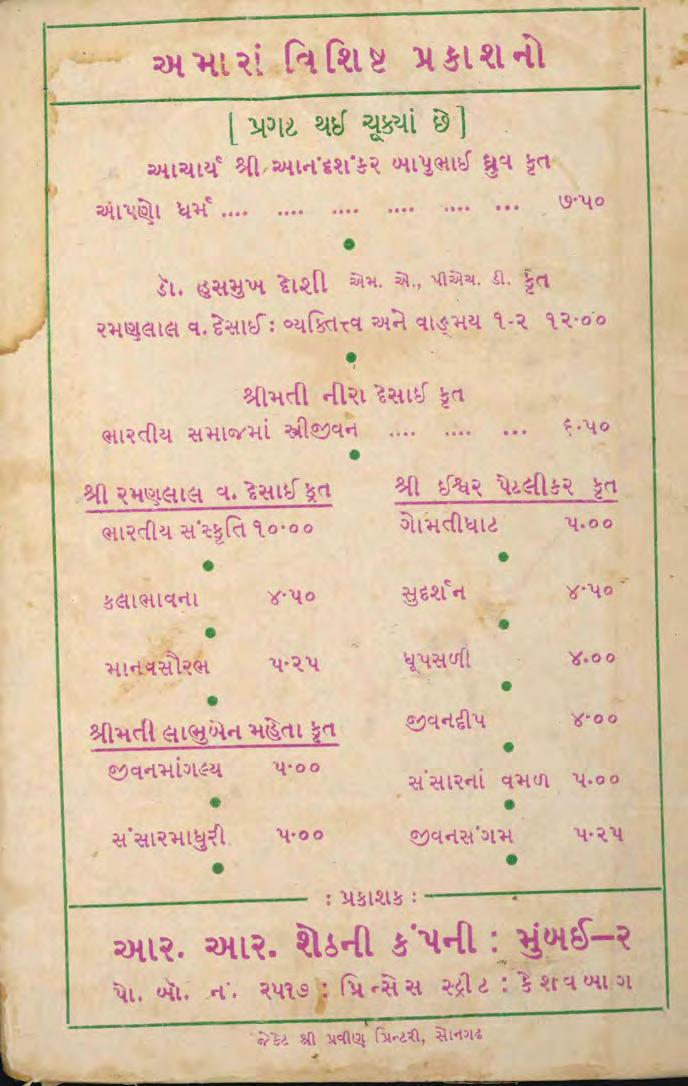 અમારાં વિશિષ્ટ પ્રકાશનો
[ પ્રગટ થઈ ચૂક્યાં છે ]
આચાર્ય શ્રી આનંદશંકર બાપુભાઈ ધ્રુવ કૃત
આપણો ધર્મ .... .... .... .... .... ... ૭·૫૦
ડૉ. હસમુખ દોશી એમ. એ., પીએચ. ડી. કૃત
રમણલાલ વ. દેસાઈ : વ્યક્તિત્ત્વ અને વાઙ્મય ૧-૨ ૧૨·૦૦
શ્રીમતી નીરા દેસાઈ કૃત
ભારતીય સમાજમાં સ્ત્રીજીવન .... .... ... ૬·૫૦
શ્રી રમણલાલ વ. દેસાઈ કૃત
ભારતીય સંસ્કૃતિ ૧૦·૦૦
કલાભાવના ૪·૫૦
માનવસૌરભ ૫·૨૫
શ્રીમતી લાભુબેન મહેતા કૃત
જીવનમાંગલ્ય ૫·૦૦
સંસારમાધુરી ૫·૦૦
શ્રી ઈશ્વર પેટલીકર કૃત
ગોમતીઘાટ ૫.૦૦
સુદર્શન ૪·૫૦
ધૂપસળી ૪.૦૦
જીવનદીપ ૪·૦૦
સંસારનાં વમળ ૫.૦૦
જીવનસંગમ ૫·૨૫
: પ્રકાશક :
આર. આર. શેઠની કંપની : મુંબઈ–૨
પો. બૉ. નં. ૨૫૧૭ : પ્રિન્સેસ સ્ટ્રીટ : કેશવબાગ
જેકેટ શ્રી પ્રવીણ પ્રિન્ટરી, સોનગઢ